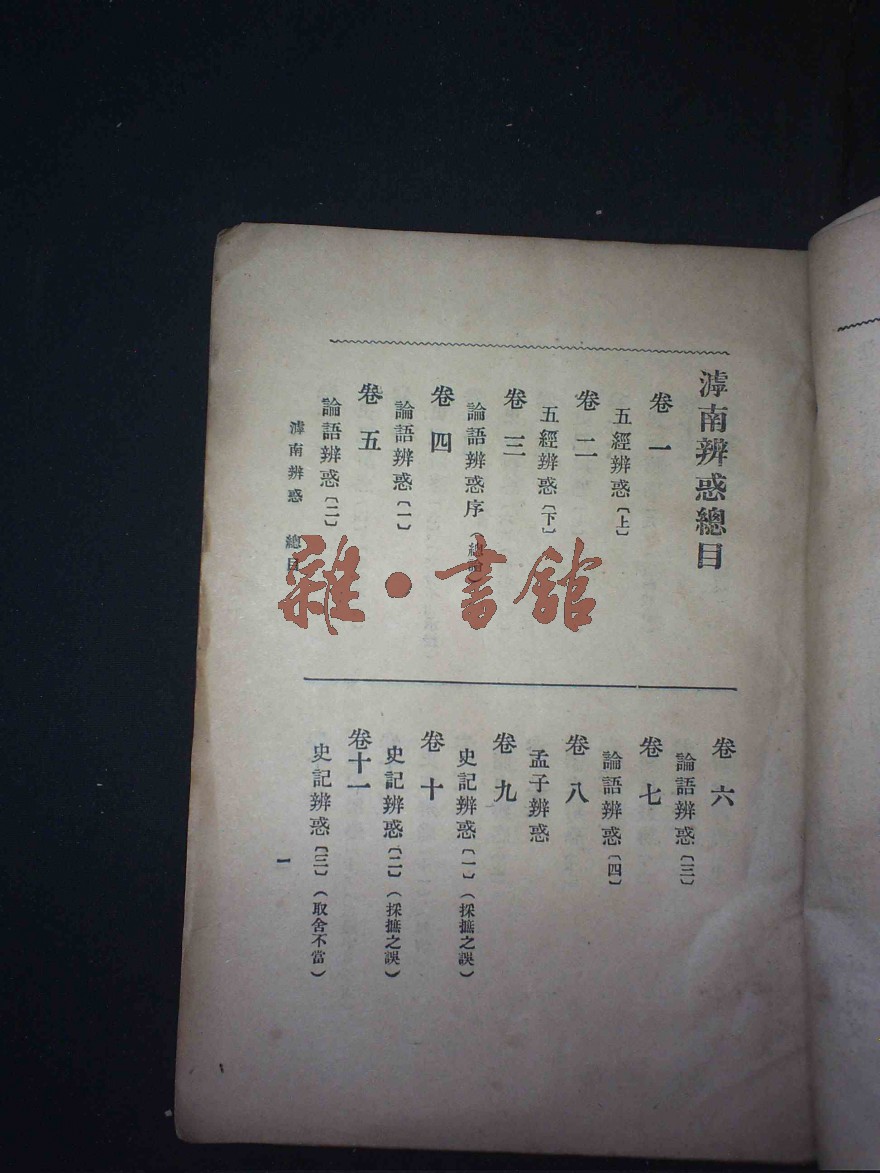 滹南辨惑總目
卷一
五經辨惑〔上〕
卷二
五經辨惑〔下〕
卷三
論語辨惑序（總論）
卷四
論語辨惑〔一〕
卷五
論語辨惑〔二〕
滹南辨惑 總目
卷六
論語辨惑〔三〕
卷七
論語辨惑〔四〕
卷八
孟子辨惑
卷九
史記辨惑〔一〕（採摭之誤）
卷十
史記辨惑〔二〕（採摭之誤）
卷十一
史記辨惑〔三〕（取舍不當）
一
雜·書舘